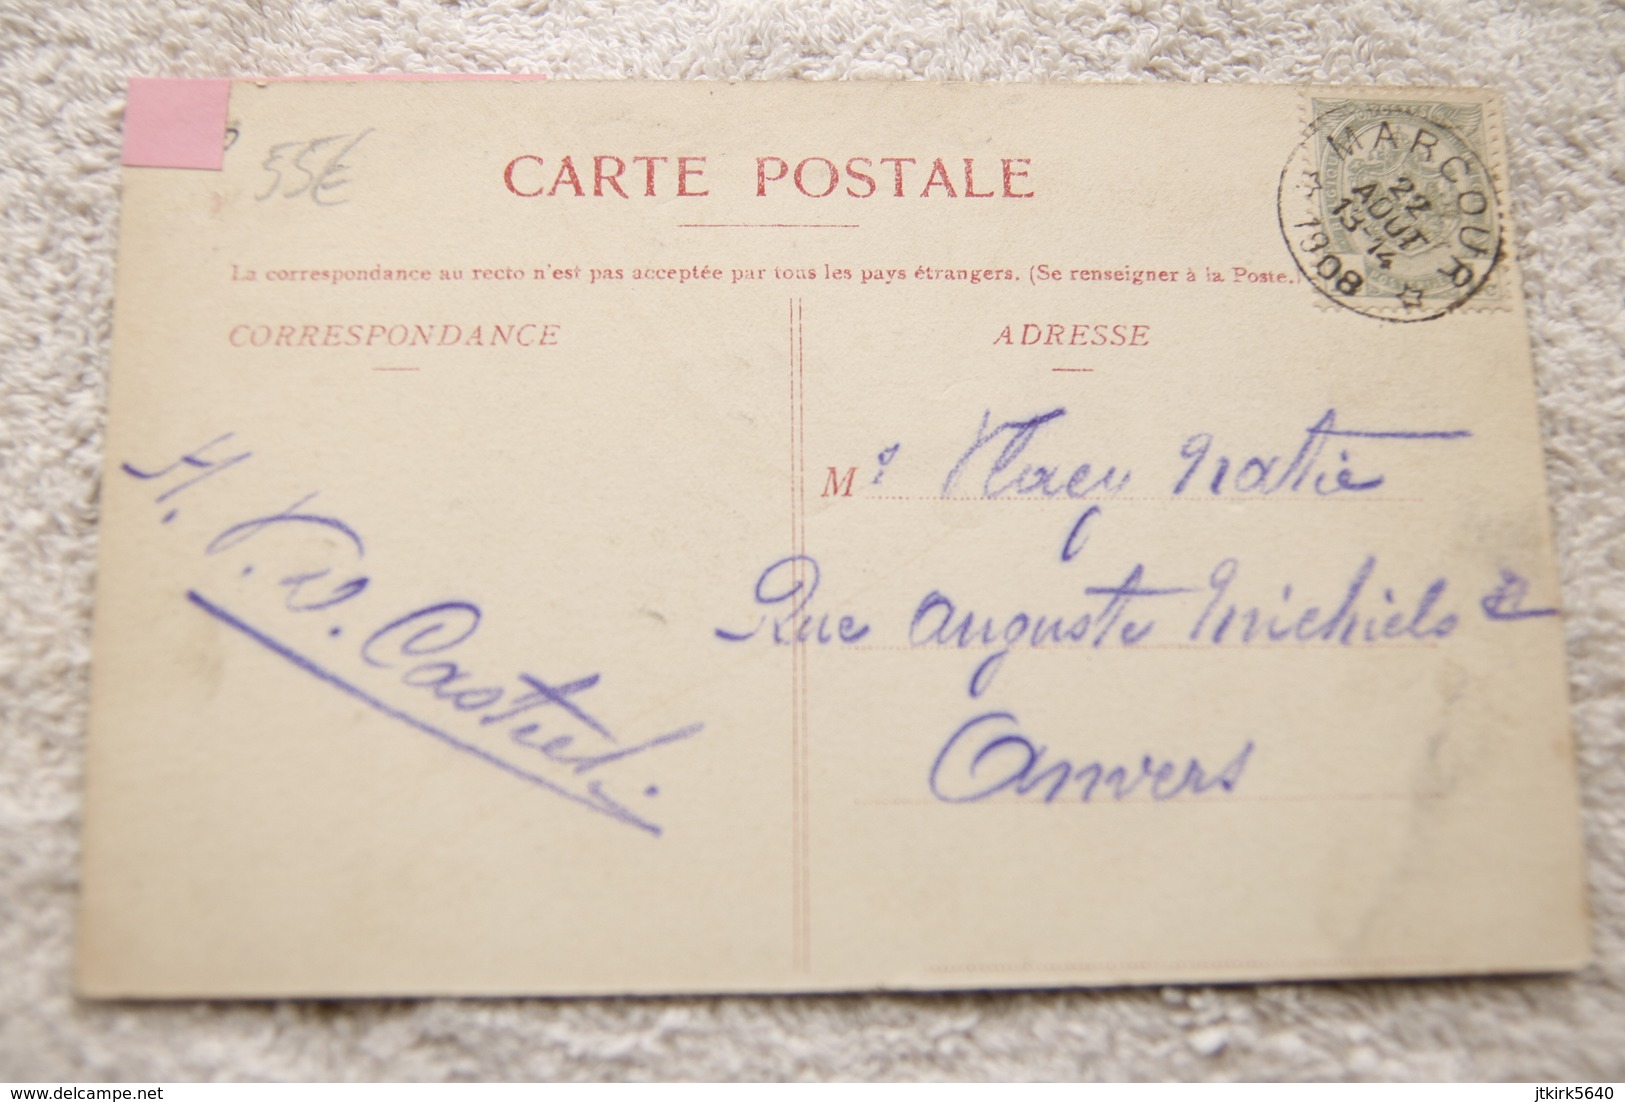 55€
CARTE POSTALE
MARCOUR
22
AOUT
13-14
1908
La correspondance au recto n'est pas acceptée par tous les pays étrangers. (Se renseigner à la Poste.)
CORRESPONDANCE
ADRESSE
M
Natie
Rue Auguste Michiels
Anvers
H.
www.delcampe.net
jtkirk5640